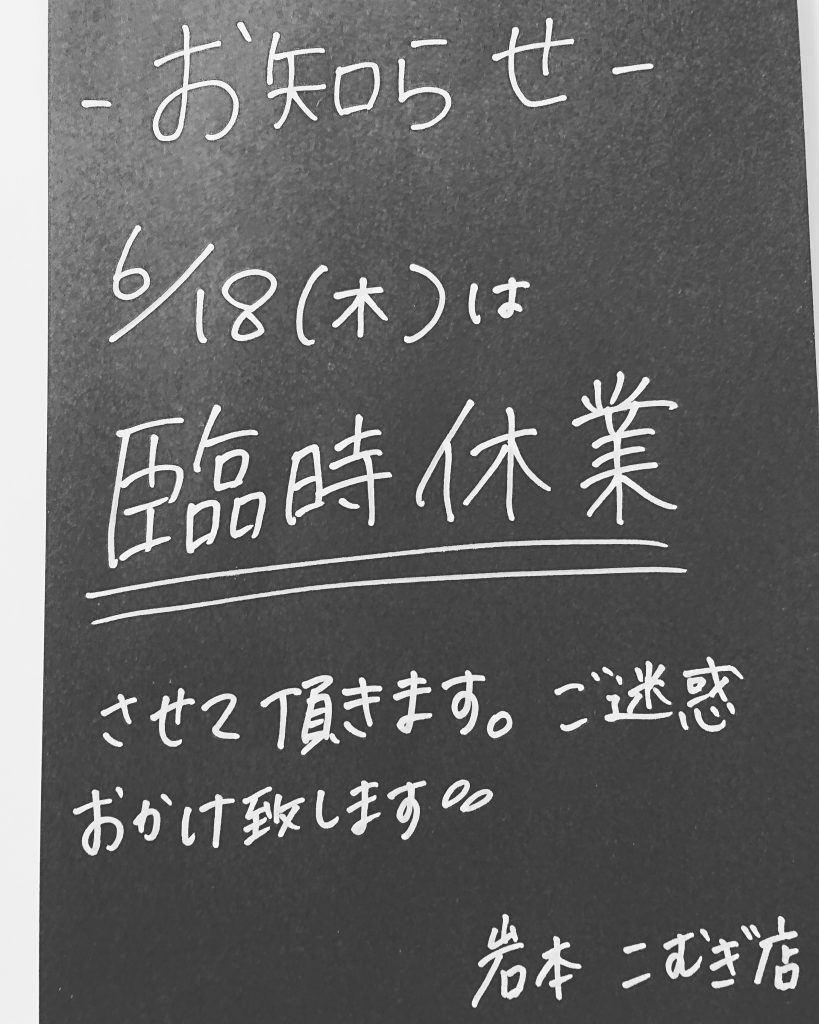 - お知らせ -
6/18(木)は
臨時休業
させて頂きます。ご迷惑
おかけ致します。。
岩本 こむぎ店